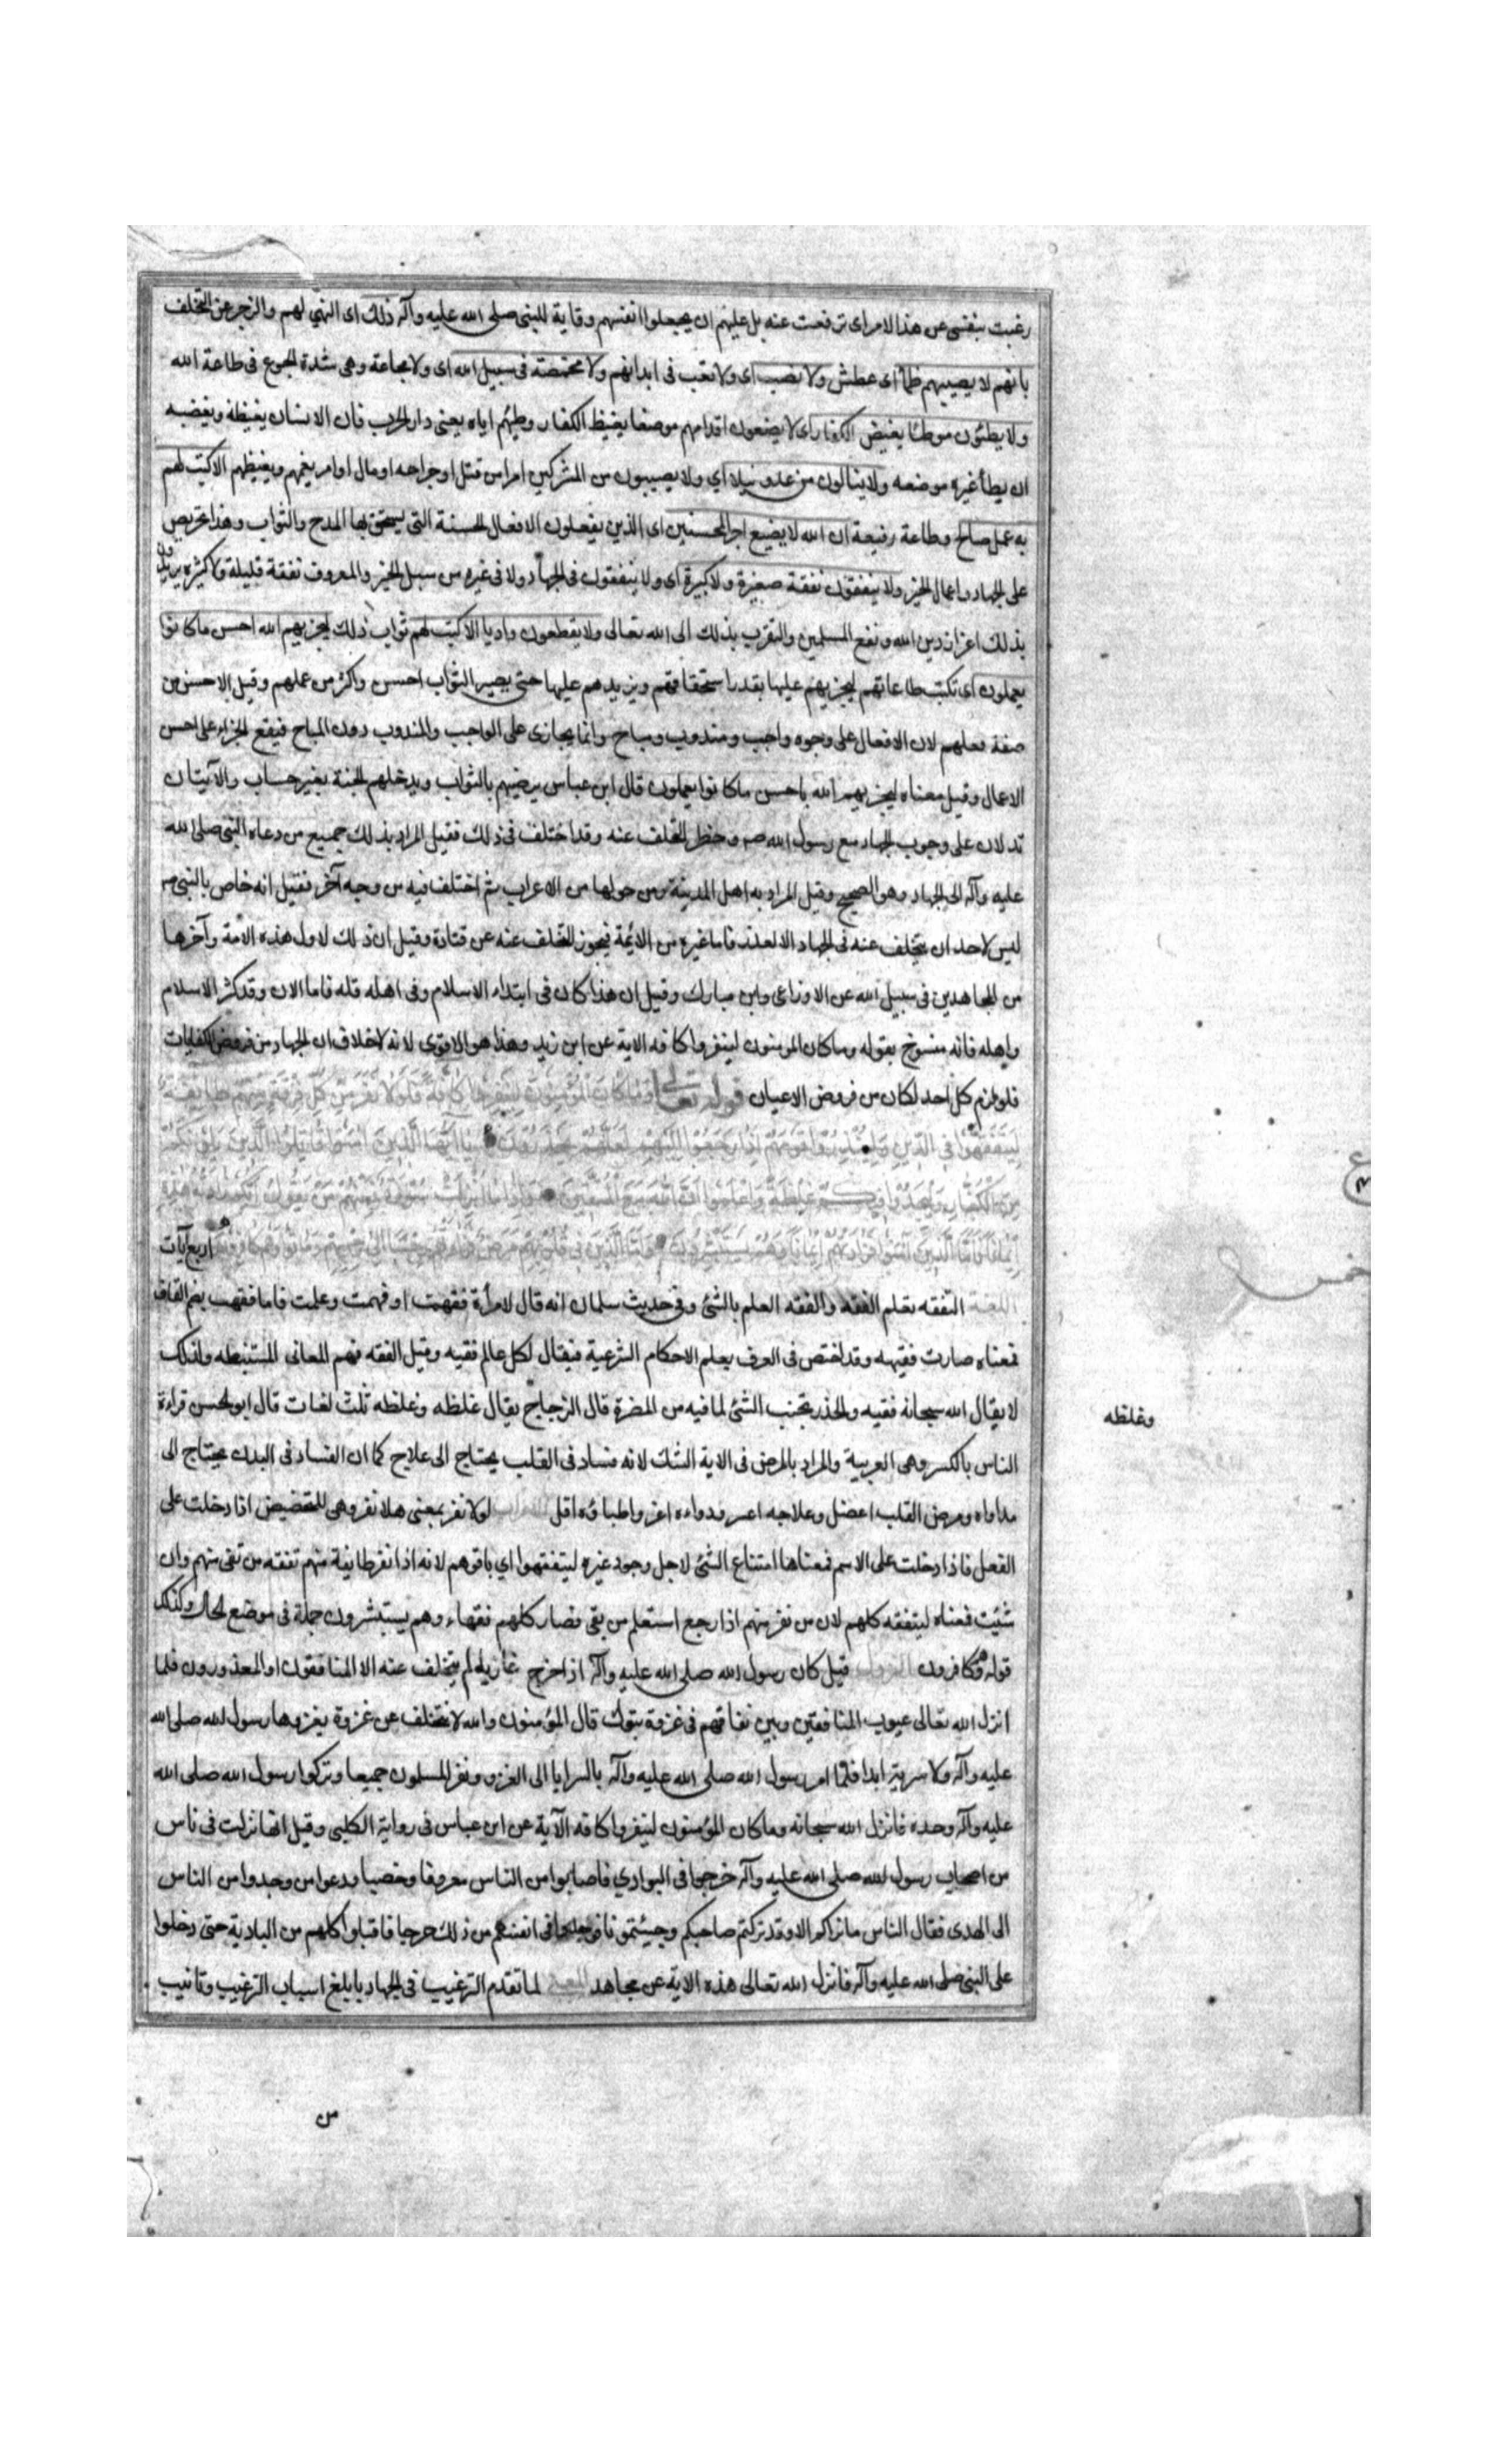 رغبت بنفسي عن هذا الامر اى ترفعت عنه بل عليهم ان يجعلوا انفسهم وقاية للنبى صلى الله عليه وآله ذلك اى النهي لهم والزجر عن التخلف
بانهم لا يصيبهم ظمأ اى عطش ولا نصب اى ولا تعب فى ابدانهم ولا مخمصة فى سبيل الله اى ولا مجاعة وهى شدة الجوع فى طاعة الله
ولا يطئون موطئا يغيض الكفار اى لا يضعون اقدامهم موضعا يغيظ الكفار وطيهم اياه يعنى دار الحرب فان الانسان يغيظه ويغضبه
ان يطأ غيره موضعه ولا ينالون من عدو نيلا اي ولا يصيبون من المشركين امرا من قتل او جراحه او مال او امر يغمهم ويغيظهم الا كتب لهم
به عمل صالح وطاعة رفيعة ان الله لا يضيع اجر المحسنين اى الذين يفعلون الافعال الحسنة التى يستحق بها المدح والثواب وهذا تحريص
على الجهاد واعمال الخير ولا ينفقون نفقة صغيرة ولا كبيرة اى ولا ينفقون فى الجهاد ولا فى غيره من سبل الخير والمعروف نفقة قليلة ولا كثيرة يريدون
بذلك اعزاز دين الله ونفع المسلمين والتقرب بذلك الى الله تعالى ولا يقطعون واديا الا كتب لهم ثواب ذلك ليجزيهم الله احسن ما كانوا
يعملون اى تكتب طاعاتهم ليجزيهم عليها بقدر استحقاقهم ويزيدهم عليها حتى يصير الثواب احسن واكثر من عملهم وقيل الاحسن من
صفة فعلهم لان الافعال على وجوه واجب ومندوب ومباح وانما يجازى على الواجب والمندوب دون المباح فيقع الجزاء على احسن
الاعمال وقيل معناه ليجزيهم الله باحسن ما كانوا يعملون قال ابن عباس يرضيهم بالثواب ويدخلهم الجنة بغير حساب والآيتان
تدلان على وجوب الجهاد مع رسول الله صم وحظر التخلف عنه وقد اختلف فى ذلك فقيل المراد بذلك جميع من دعاه النبى صلى الله
عليه وآله الى الجهاد وهو الصحيح وقيل المراد به اهل المدينة ومن حولها من الاعراب ثم اختلف فيه من وجه آخر فقيل انه خاص بالنبى صم
ليس لاحد ان يتخلف عنه فى الجهاد الا لعذر فاما غيره من الائمة فيجوز التخلف عنه عن قتادة وقيل ان ذلك لاول هذه الامة وآخرها
من المجاهدين فى سبيل الله عن الاوزاعى وابن مبارك وقيل ان هذا كان فى ابتداء الاسلام وفى اهله قله فاما الان وقد كثر الاسلام
واهله فانه منسوخ بقوله وما كان المومنون لينفروا كافه الاية عن ابن زيد وهذا هو الاقوى لانه لا خلاف ان الجهاد من فروض الكفايات
فلو لزم كل احد لكان من فروض الاعيان قوله تعالى وما كان المؤمنون لينفروا كافة فلولا نفر من كل فرقة منهم طائفة
ليتفقهوا فى الدين ولينذروا قومهم اذا رجعوا اليهم لعلهم يحذرون يا ايها الذين امنوا قاتلوا الذين يلونكم
من الكفار وليجدوا فيكم غلظة واعلموا ان الله مع المتقين واذا ما انزلت سورة فمنهم من يقول ايكم زادته هذه
ايمانا فاما الذين آمنوا فزادتهم ايمانا وهم يستبشرون واما الذين فى قلوبهم مرض فزادتهم رجسا الى رجسهم وماتوا وهم كافرون اربع آيات
اللغة التفقه تعلم الفقه والفقه العلم بالشئ وفى حديث سلمان انه قال لامرأة فقهت اى فهمت وعلمت فاما فقهت بضم القاف
فمعناه صارت فقيهه وقد اختص فى العرف بعلم الاحكام الشرعية فيقال لكل عالم فقيه وقيل الفقه فهم المعانى المستنبطه ولذلك
لا يقال الله سبحانه فقيه والحذر تجنب الشئ لما فيه من المضرة قال الزجاج يقال غلظه وغلظه ثلث لغات قال ابو الحسن قراءة
وغلظه
الناس بالكسر وهى العربية والمراد بالمرض فى الاية الشك لانه فساد فى القلب يحتاج الى علاج كما ان الفساد فى البدن يحتاج الى
مداواه ومرض القلب اعضل وعلاجه اعسر ودواءه اعز واطباؤه اقل الاعراب لولا نفر بمعنى هلا نفر وهى للتحضيض اذا دخلت على
الفعل فاذا دخلت على الاسم فمعناها امتناع الشئ لاجل وجود غيره ليتفقهوا اي باقوهم لانه اذا نفر طايفة منهم تفقه من بقى منهم وان
شئت فمعناه ليتفقه كلهم لان من نفر منهم اذا رجع استعلم من بقى فصار كلهم فقهاء وهم يستبشرون جملة فى موضع الحال وكذلك
قوله وهم كافرون النزول قيل كان رسول الله صلى الله عليه وآله اذا خرج غازيا لم يتخلف عنه الا المنافقون او المعذورون فلما
انزل الله تعالى عيوب المنافقين وبين نفاقهم فى غزوة تبوك قال المؤمنون والله لا نتخلف عن غزوة يغزوها رسول الله صلى الله
عليه وآله ولا سرية ابدا فلما امر رسول الله صلى الله عليه وآله بالسرايا الى الغزو ونفر المسلمون جميعا وتركوا رسول الله صلى الله
عليه وآله وحده فانزل الله سبحانه وما كان المؤمنون لينفروا كافة الآية عن ابن عباس فى رواية الكلبى وقيل انها نزلت فى ناس
من اصحاب رسول الله صلى الله عليه وآله خرجوا فى البوادي فاصابوا من الناس معروفا وخصبا ودعوا من وجدوا من الناس
الى الهدى فقال الناس ما نراكم الا وقد تركتم صاحبكم وجئتمونا فوجدوا فى انفسهم من ذلك حرجا فاقبلوا كلهم من البادية حتى دخلوا
على النبى صلى الله عليه وآله فانزل الله تعالى هذه الاية عن مجاهد لما تقدم الترغيب فى الجهاد بابلغ اسباب الترغيب وتانيب
من